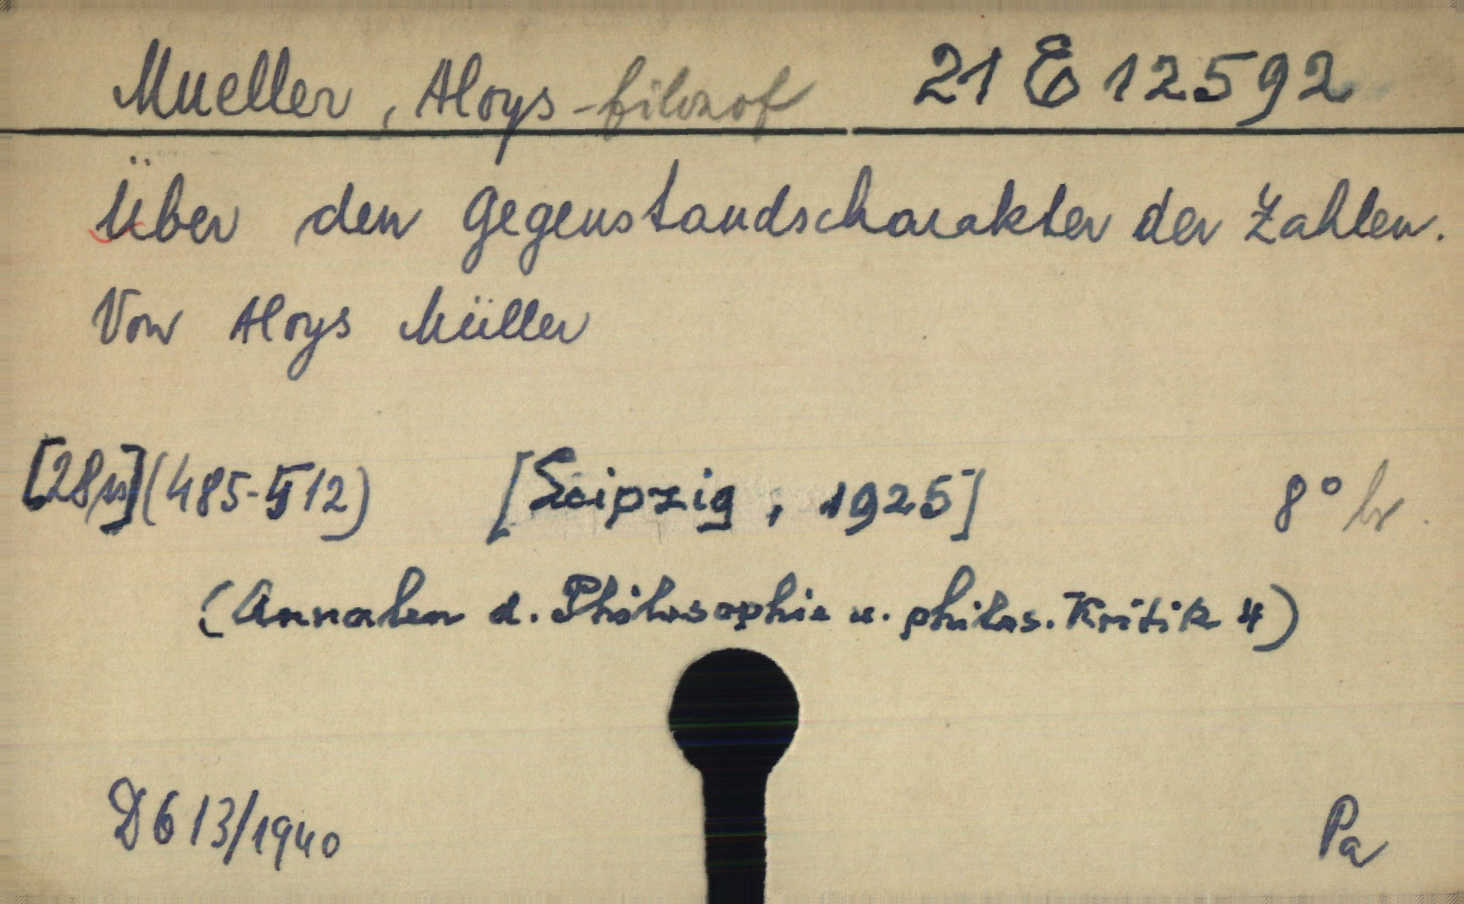 Mueller, Aloys - filozof 21 E 12592
Über den Gegenstandscharakter der Zahlen.
Von Aloys Müller
(485-512) [Leipzig, 1925] 8° br.
(Annalen d. Philosophie u. philos. Kritik 4)
D 613/1940 Pa